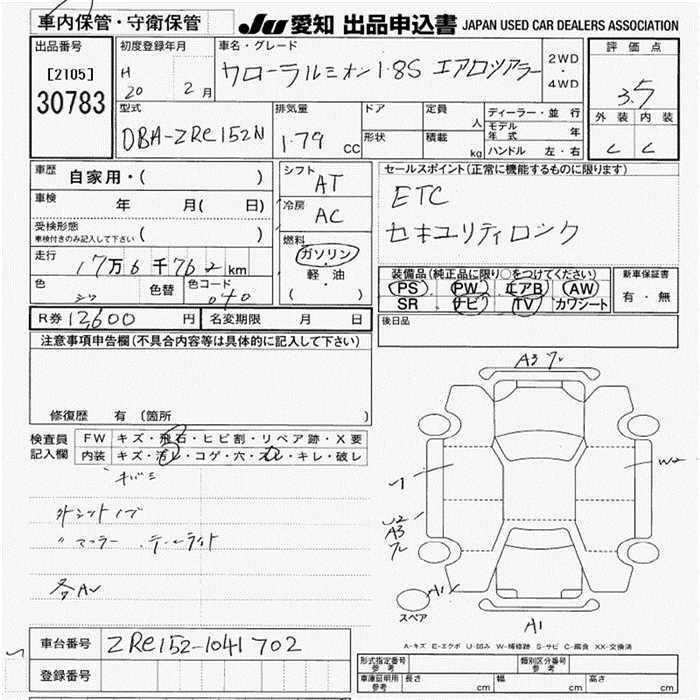 車内保管・守衛保管
JU 愛知 出品申込書 JAPAN USED CAR DEALERS ASSOCIATION
出品番号
[2105]
30783
初度登録年月
H 20 2月
車名・グレード
カローラルミオン1.8S エアロツアラー
2WD
・
4WD
評価点
3.5
外装 内装
C C
型式
DBA-ZRE152N
排気量
1.79 CC
ドア
形状
定員 人
積載 kg
ディーラー・並行
モデル年式 年
ハンドル 左・右
車歴 自家用・( )
車検 年 月( 日)
受検形態
車検付きのみ記入して下さい ( )
走行 17万6千762km
色 色替 色コード
040
シフト
AT
冷房
AC
燃料
ガソリン
・
軽・油
( )
セールスポイント(正常に機能するものに限ります)
ETC
セキュリティロック
装備品(純正品に限り○をつけてください)
PS PW エアB AW
SR ナビ TV カワシート
新車保証書
有・無
R券 12,600 円 名変期限 月 日
後日品
注意事項申告欄(不具合内容等は具体的に記入して下さい)
修復歴 有(箇所 )
検査員
記入欄
FW キズ・飛石・ヒビ割・リペア跡・X要
内装 キズ・汚レ・コゲ・穴・スレ・キレ・破レ
外シフトノブ
〃マフラー・テールライト
各A
A3
W2
U2
A3
A1
A1
スペア
A-キズ E-エクボ U-凹み W-補修跡 S-サビ C-腐食 XX-交換済
車台番号 ZRE152-1041702
登録番号
形式指定番号 参考
類別区分番号 参考
車庫証明用 参考 長さ cm 幅 cm 高さ cm